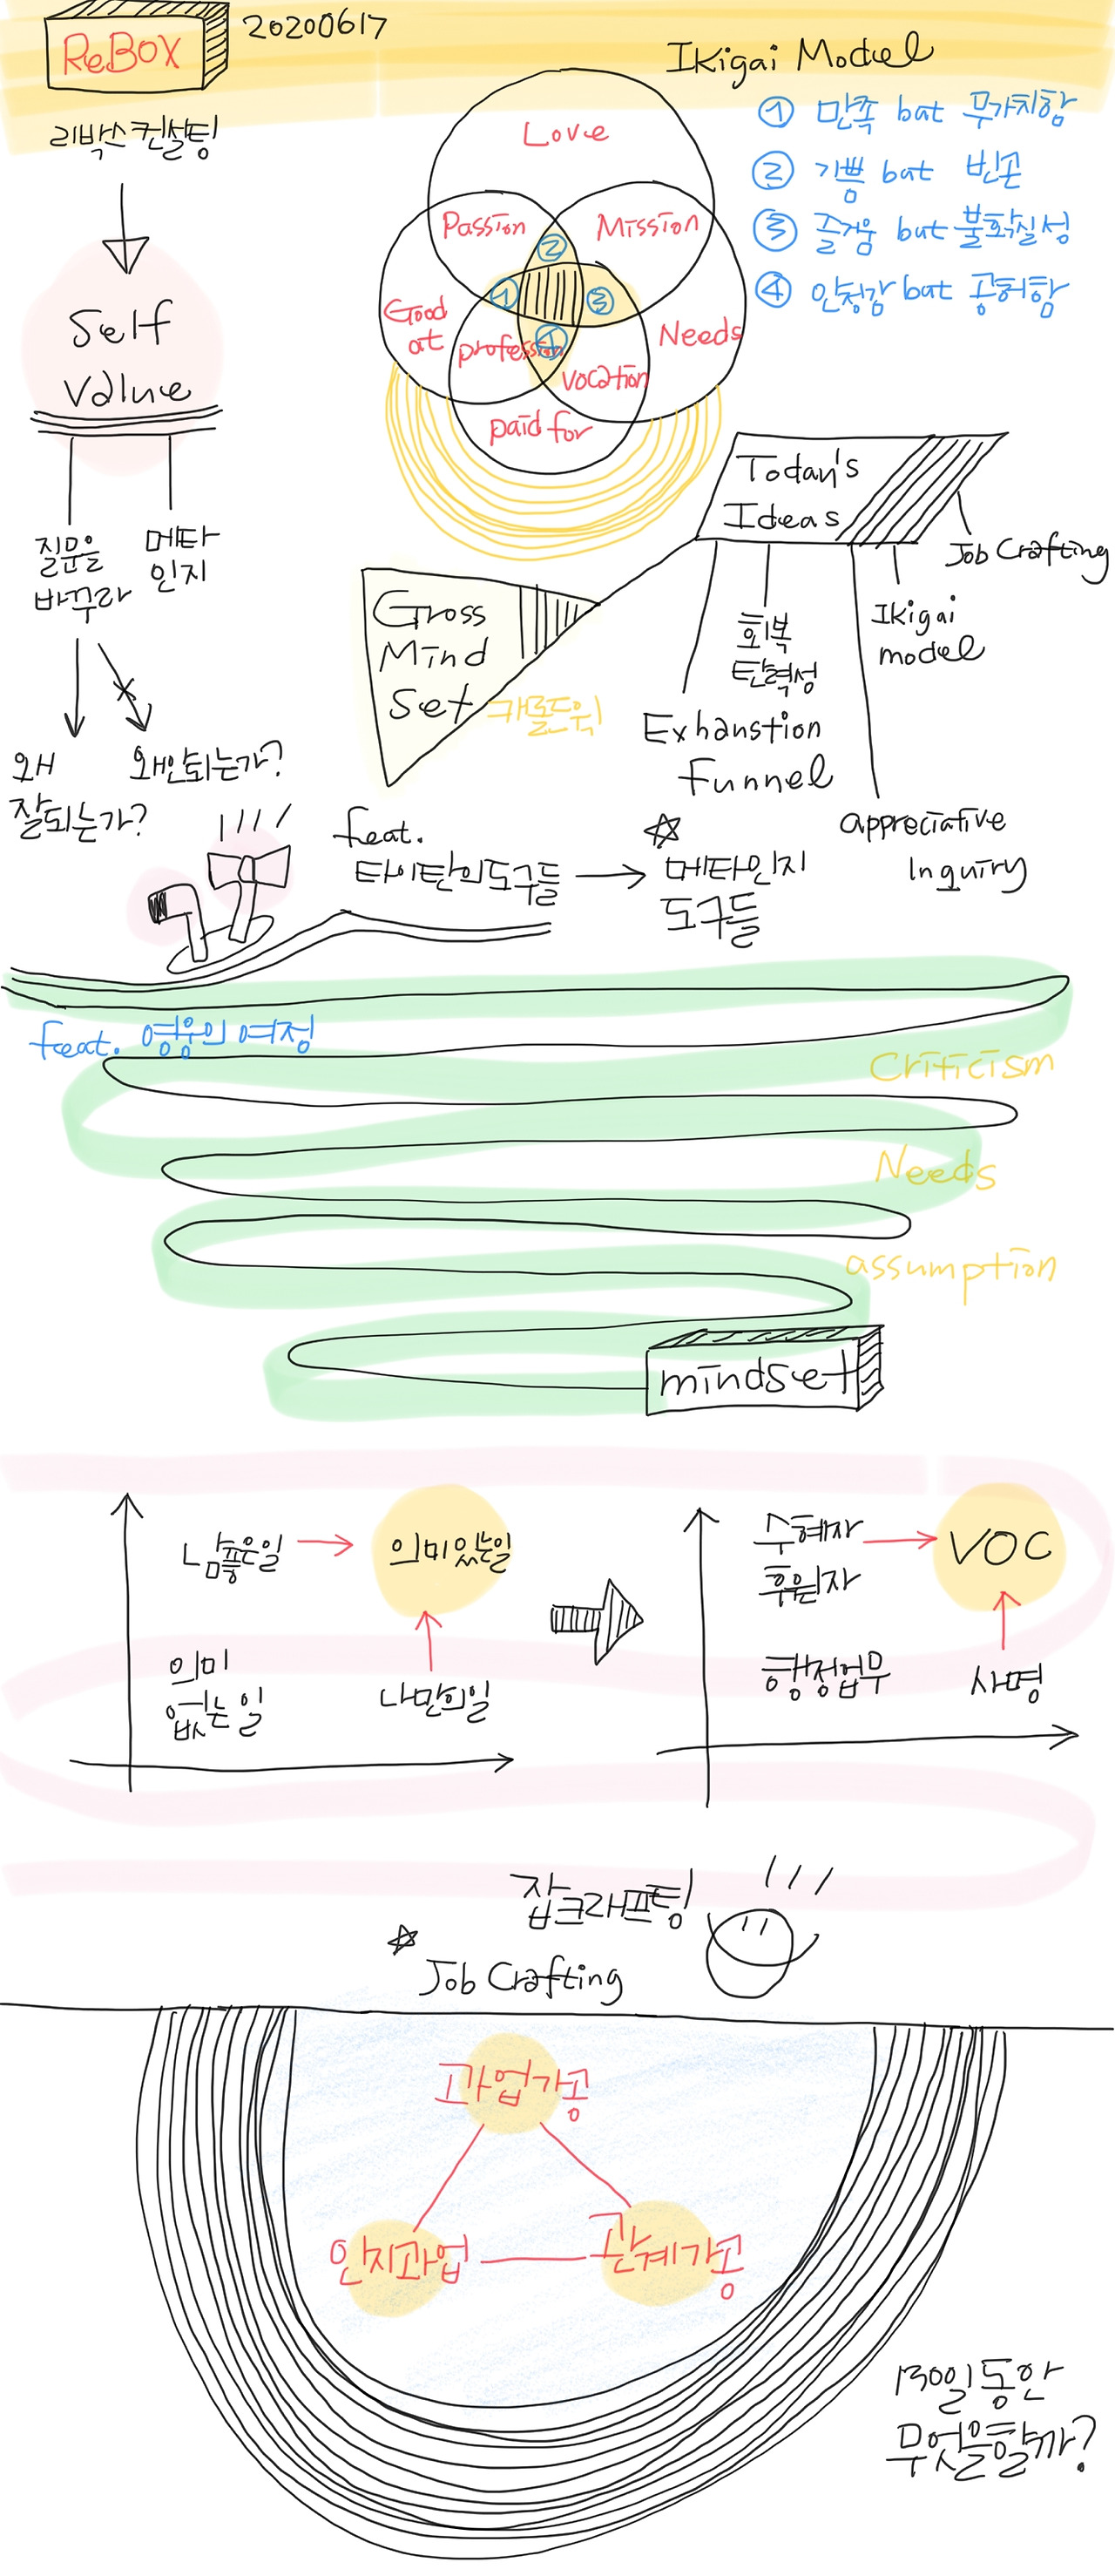 ReBOX
20200617
리박스 컨설팅
Self
Value
질문을
바꾸라
메타
인지
왜
잘되는가?
왜안되는가?
Ikigai Model
① 만족 bat 무가치함
② 기쁨 bat 빈곤
③ 즐거움 but 불확실성
④ 안정감 bat 공허함
Love
Passion
Mission
②
①
③
Good
at
Needs
④
profession
vocation
paid for
Today's
Ideas
Job Crafting
Ikigai
model
회복
탄력성
Exhanstion
Funnel
appreciative
Inquiry
Gross
Mind
Set
캐롤드웩
feat.
타이탄의도구들
메타인지
도구들
feat. 영웅의 여정
Criticism
Needs
assumption
mindset
남좋은일
의미있는일
의미
없는 일
나만의일
수혜자
후원자
VOC
행정업무
사명
잡크래프팅
Job Crafting
과업가공
인지과업
관계가공
130일동안
무엇을할까?